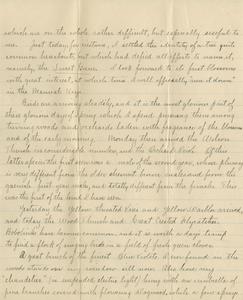 which are on the whole rather difficult, but especially so
me. Just today, for instance, I settled the identity of a
common one, but which had defied all efforts to name it,
namely, the Sweet Gum. I look forward to its first blossoms
with great interest, at which time I will officially "run it down"
in the Manual Key.
Birds are arriving steadily, and it is the most glorious part of
these glorious days of spring which I spend pursuing them among
woods and orchards laden with fragrance of the blossoms
and of the early morning. Monday there arrived the Wood
Thrush in considerable number, and the Orchard Oriole. Of the
latter species the first arrival was a male of the second year, whose plumage
is very different from the older chestnut brown, and
the first year male, and totally different from the female. This
was the first of the kind I have seen.
Yesterday the Yellow-throated Vireo and Yellow Warbler arrived,
and today the Wood Thrush and Great Crested Flycatcher.
Bobolinks have become common, and it is worth a day's tramp
to find a flock of singing birds in a field of fresh green clover.
A great bunch of the finest Bluebells I ever found in the
woods stands on my window sill now. Also have my
chandelier (or suspended electric light) hung with
branches covered with flowering dogwood, which a few